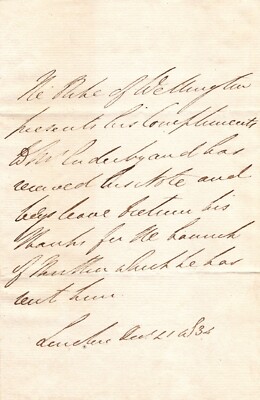 The Duke of Wellington
presents his Compliments
to Mr Enderby and has
received his Note and
begs leave to return his
thanks for the Haunch
of Mutton which he has
sent him.
London 21 1834